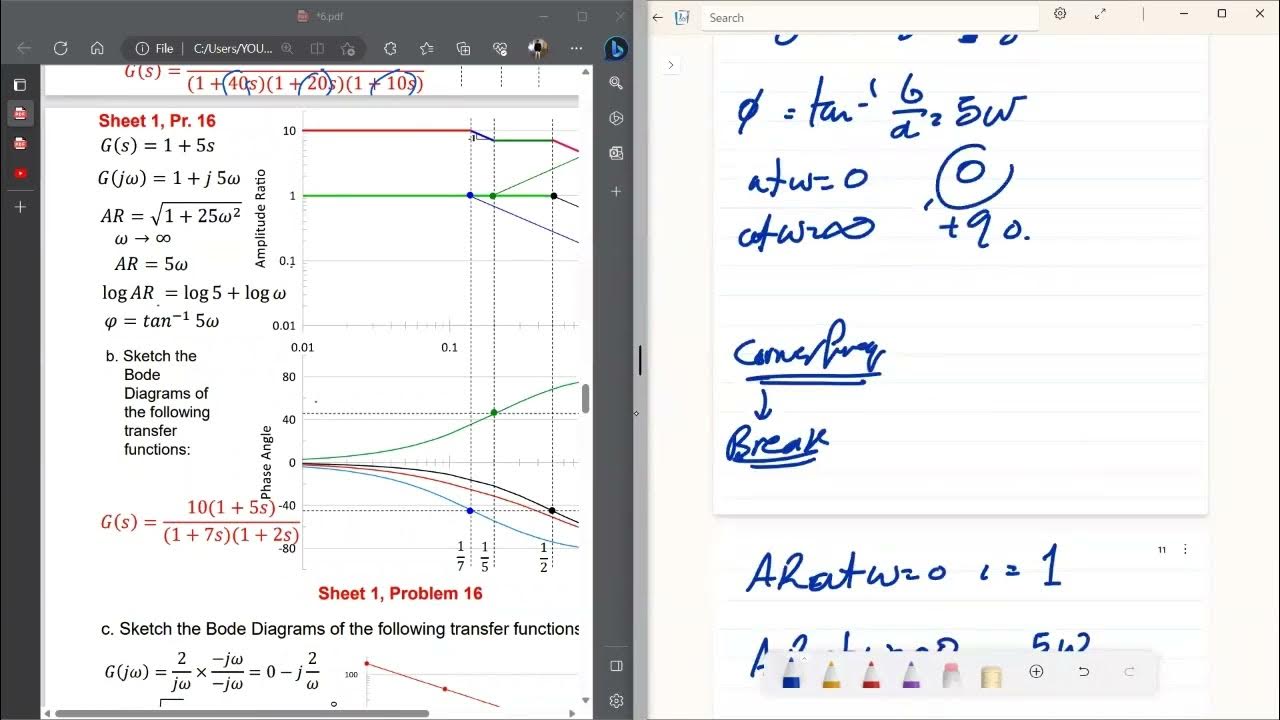 *6.pdf
File C:/Users/YOU...
G(s) = (1 + 40s)(1 + 20s)(1 + 10s)
Sheet 1, Pr. 16
G(s) = 1 + 5s
G(jω) = 1 + j 5ω
AR = √1 + 25ω²
ω → ∞
AR = 5ω
log AR = log 5 + log ω
φ = tan⁻¹ 5ω
b. Sketch the
Bode
Diagrams of
the following
transfer
functions:
G(s) = 10(1 + 5s) / (1 + 7s)(1 + 2s)
Amplitude Ratio
10
1
0.1
0.01
-1
0.01 0.1
Phase Angle
80
40
0
-40
-80
1/7 1/5 1/2
Sheet 1, Problem 16
c. Sketch the Bode Diagrams of the following transfer functions
G(jω) = 2/jω × -jω/-jω = 0 − j 2/ω
100
Search
φ = tan⁻¹ b/a = 5w
at w = 0 0
at w = ∞ +90.
Corner freq
↓
Break
11
AR at w = 0 = 1
5w